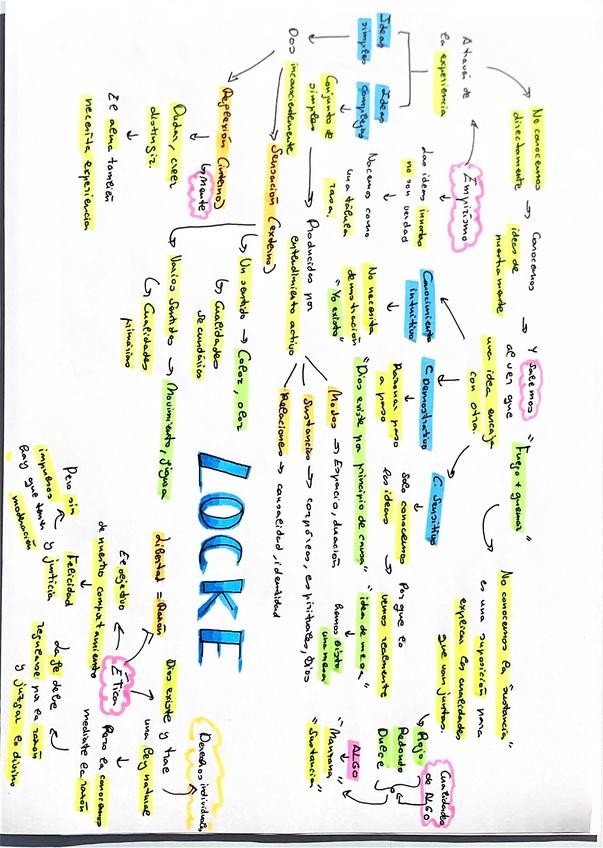 No conocemos
directamente
→ Conocemos
ideas de
nuestra mente
→ Y sabemos
al ver que
una idea encaja
con otra
"Fuego + quemar"
A través de
la experiencia
Empirismo
Las ideas innatas
no son verdad
↓
Nacemos como
una tábula
rasa
Ideas
simples
Ideas
complejas
↓
Conjunto de
simples
Dos
inconscientemente
→ Producidas por
entendimiento activo
Modos → Espacio, duración
Sustancias → corpóreas, espirituales, Dios
Relaciones → causalidad, identidad
Sensación (externo)
Reflexión (interno)
↳ Mente
Dudar, creer
distinguir
↓
El alma también
necesita experiencia
Un sentido → Color, olor
↳ Cualidades
secundarias
Varios sentidos → Movimiento, figura
↳ Cualidades
primarias
Conocimiento
intuitivo
↓
No necesita
demostración
"Yo existo"
C. Demostrativo
↓
Razonar paso
a paso
"Dios existe por principio de causa"
C. Sensitivo
↓
Solo conocemos
las ideas
→ Porque lo
vemos realmente
"idea de mesa"
↓
hemos visto
una mesa
No conocemos la sustancia"
es una suposición para
explicar las cualidades
que van juntas.
Cualidades
de ALGO
↳ Rojo
Redondo
Dulce
ALGO
"Manzana"
"Sustancia"
LOCKE
Ética
libertad = Razón
Es objetivo
de nuestro comportamiento
↓
Felicidad
y justicia
Pero sin
impulsos
Hay que tener
moderación
Dios existe y trae
una ley natural
Derechos individuales
Pero la conocemos
mediante la razón
La fe debe
regularse por la razón
y juzgar lo divino